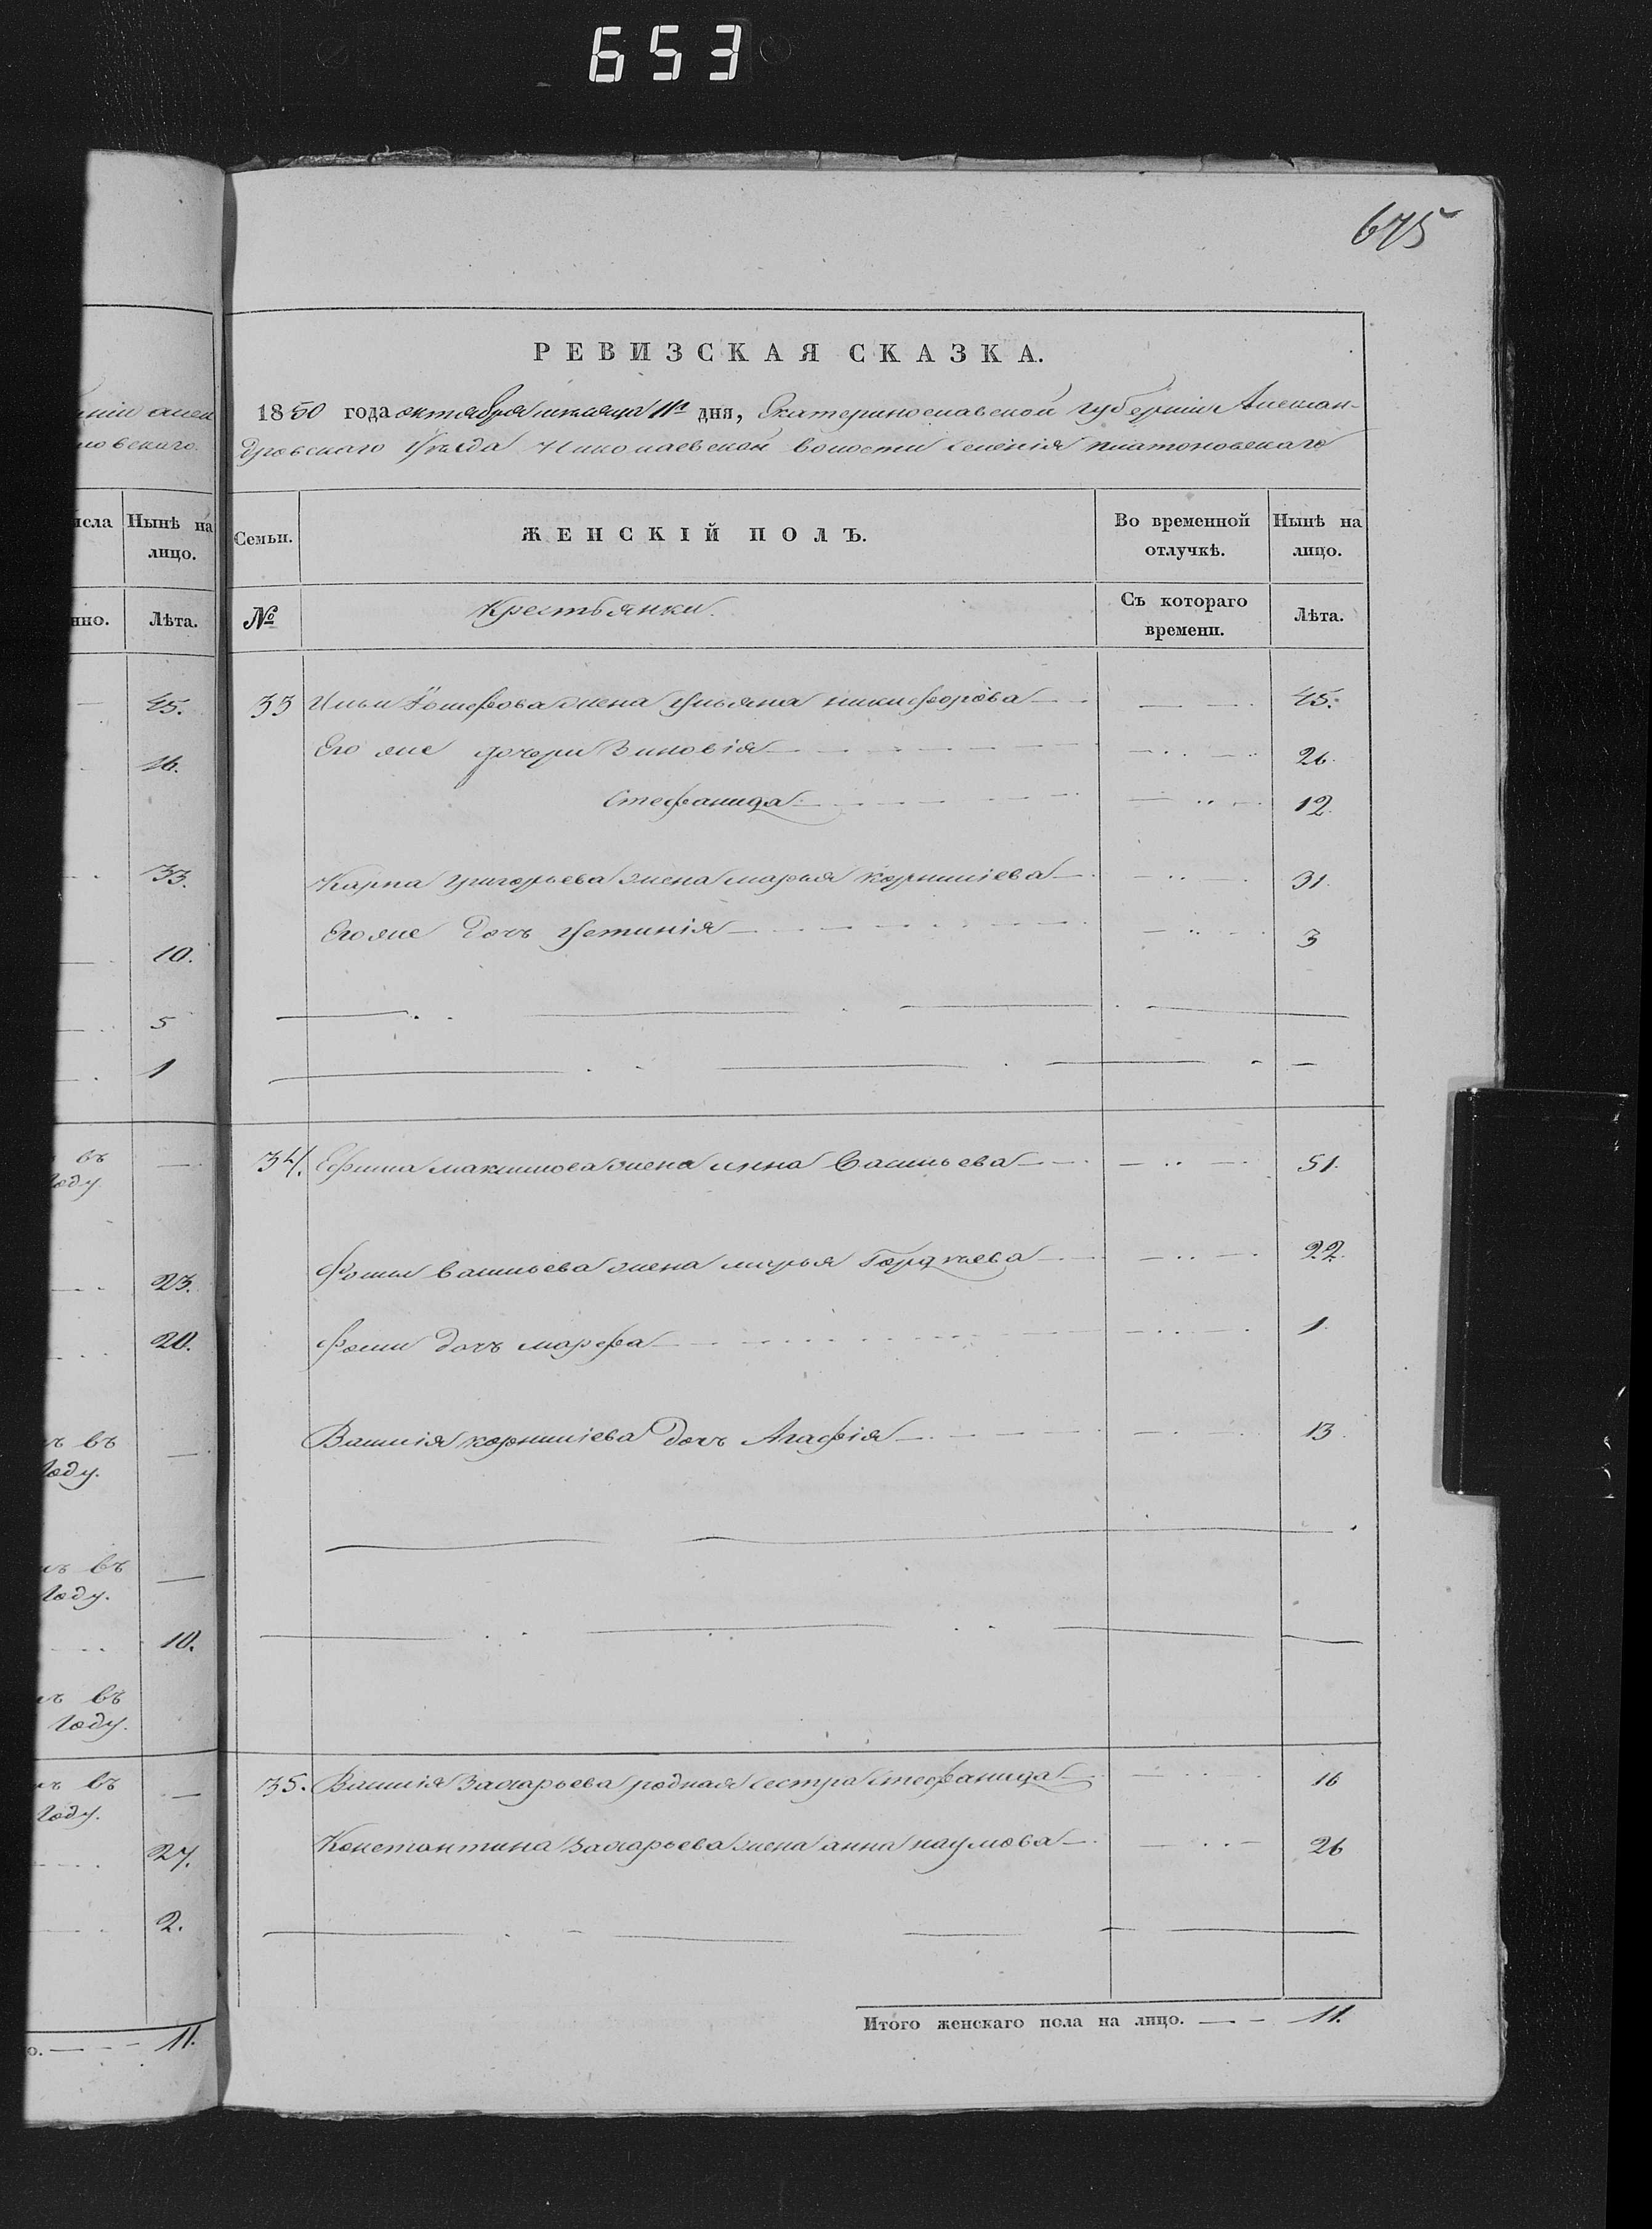 653
675
РЕВИЗСКАЯ СКАЗКА.
1850 года октября месяца 11го дня, Екатеринославской губерніи Алексан-
дровскаго уѣзда Николаевской волости селенія платоновскаго
Семьи.
ЖЕНСКІЙ ПОЛЪ.
Во временной отлучкѣ.
Нынѣ на лицо.
№
Крестьянки.
Съ котораго времени.
Лѣта.
33 Ильи жена ульяна никифорова 45.
Его же дочери Зиновія 26.
Стефанида 12.
Карпа григорьева жена марья корниліева 31.
Его же дочь устинія 3
34. Ефима максимова жена анна Васильева 51.
Фомы васильева жена марья Гордѣева 22.
Фомы дочь марфа 1.
Василія корниліева дочь Агафія 13.
35. Василія Захарьева родная сестра стефанида 16
Константина Захарьева жена анна наумова 26
Итого женскаго пола на лицо. 11.
Нынѣ на лицо.
Лѣта.
45.
16.
33.
10.
5
1
въ
году.
23.
20.
въ
году.
въ
году.
10.
въ
году.
въ
году.
27.
2.
11.